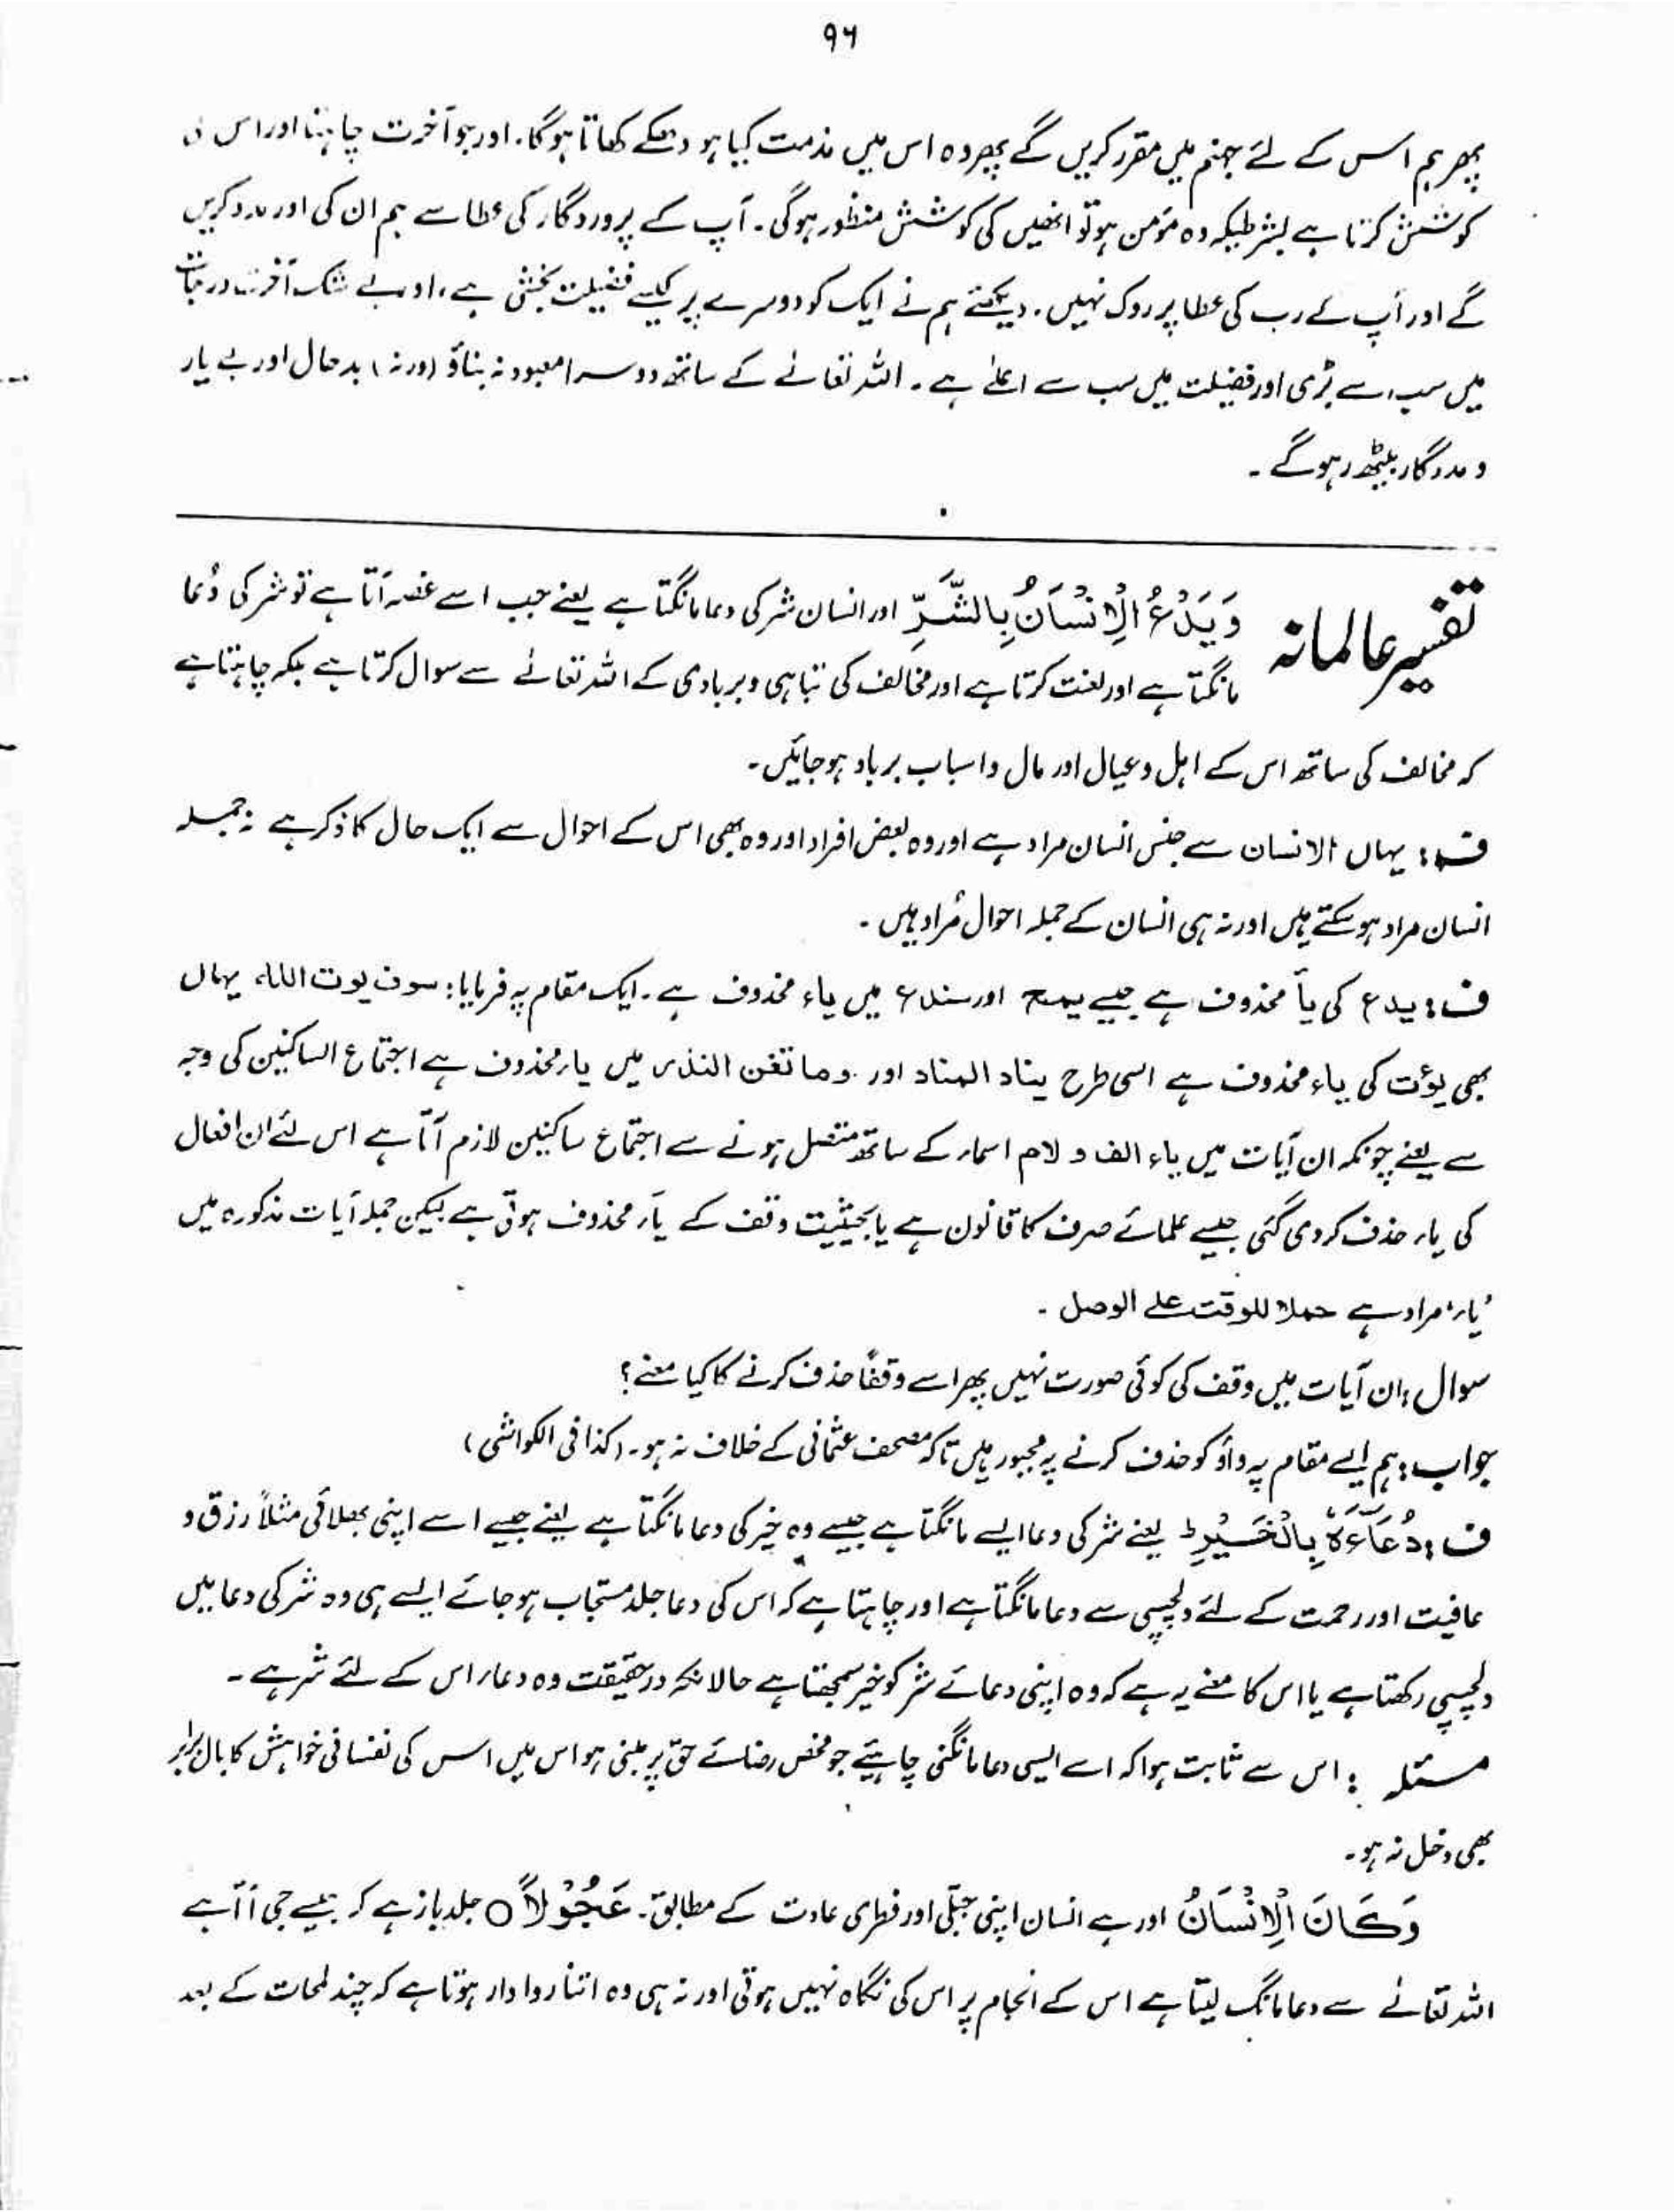 ۹۶
پھر ہم اس کے لئے جہنم میں مقرر کریں گے پھر وہ اس میں مذمت کیا ہو دھکے کھاتا ہو گا۔ اور جو آخرت چاہتا اور اس
کوشش کرتا ہے بشرطیکہ وہ مؤمن ہو تو انھیں کی کوشش منظور ہو گی۔ آپ کے پروردگار کی عطا سے ہم ان کی اور مدد کریں
گے اور آپ کے رب کی عطا پر روک نہیں۔ دیکھئے ہم نے ایک کو دوسرے پر کیسے فضیلت بخشی ہے، اور بے شک آخرت درجات
میں سب سے بڑی اور فضیلت میں سب سے اعلےٰ ہے۔ اللہ تعالےٰ کے ساتھ دوسرا معبود نہ بناؤ (ورنہ) بد حال اور بے یار
و مددگار بیٹھ رہو گے۔
تفسیر عالمانہ
وَيَدْعُ الْاِنْسَانُ بِالشَّرِّ اور انسان شر کی دعا مانگتا ہے یعنے جب اسے غصہ آتا ہے تو شر کی دُعا
مانگتا ہے اور لعنت کرتا ہے اور مخالف کی تباہی و بربادی کے اللہ تعالےٰ سے سوال کرتا ہے بلکہ چاہتا ہے
کہ مخالف کی ساتھ اس کے اہل و عیال اور مال و اسباب برباد ہو جائیں۔
ف: یہاں الانسان سے جنس انسان مراد ہے اور وہ بعض افراد اور وہ بھی اس کے احوال سے ایک حال کا ذکر ہے نہ جملہ
انسان مراد ہو سکتے ہیں اور نہ ہی انسان کے جملہ احوال مُراد ہیں۔
ف: یدع کی یأ محذوف ہے جیسے یمح اور سندع میں یاء محذوف ہے۔ ایک مقام پہ فرمایا: سوف یوت اللہ یہاں
بھی یؤت کی یاء محذوف ہے اسی طرح یناد المناد اور وما تغن النذر میں یاء محذوف ہے اجتماع الساکنین کی وجہ
سے یعنے چونکہ ان آیات میں یاء الف و لام اسماء کے ساتھ متصل ہونے سے اجتماع ساکنین لازم آتا ہے اس لئے ان افعال
کی یاء حذف کر دی گئی جیسے علمائے صرف کا قانون ہے یا بحیثیت وقف کے یاء محذوف ہوتی ہے لیکن جملہ آیات مذکورہ میں
'یاء' مراد ہے حملا للوقت علے الوصل۔
سوال: ان آیات میں وقف کی کوئی صورت نہیں پھر اسے وقفاً حذف کرنے کا کیا معنے؟
جواب: ہم ایسے مقام پہ واؤ کو حذف کرنے پہ مجبور ہیں تاکہ مصحف عثمانی کے خلاف نہ ہو۔ (کذا فی الکواشی)
ف: دُعَآءَہٗ بِالْخَيْرِ ط یعنے شر کی دعا ایسے مانگتا ہے جیسے وہ خیر کی دعا مانگتا ہے یعنے جیسے اسے اپنی بھلائی مثلاً رزق و
عافیت اور رحمت کے لئے دلچسپی سے دعا مانگتا ہے اور چاہتا ہے کہ اس کی دعا جلد مستجاب ہو جائے ایسے ہی وہ شر کی دعا میں
دلچسپی رکھتا ہے یا اس کا معنے یہ ہے کہ وہ اپنی دعائے شر کو خیر سمجھتا ہے حالانکہ درحقیقت وہ دعاء اس کے لئے شر ہے۔
مسئلہ: اس سے ثابت ہوا کہ اسے ایسی دعا مانگنی چاہیئے جو محض رضائے حق پر مبنی ہو اس میں اس کی نفسانی خواہش کا بال برابر
بھی دخل نہ ہو۔
وَكَانَ الْاِنْسَانُ اور ہے انسان اپنی جبلّی اور فطری عادت کے مطابق۔ عَجُوْلًا ○ جلد باز ہے کہ جیسے جی آتا ہے
اللہ تعالےٰ سے دعا مانگ لیتا ہے اس کے انجام پر اس کی نگاہ نہیں ہوتی اور نہ ہی وہ اتنا روا دار ہوتا ہے کہ چند لمحات کے بعد